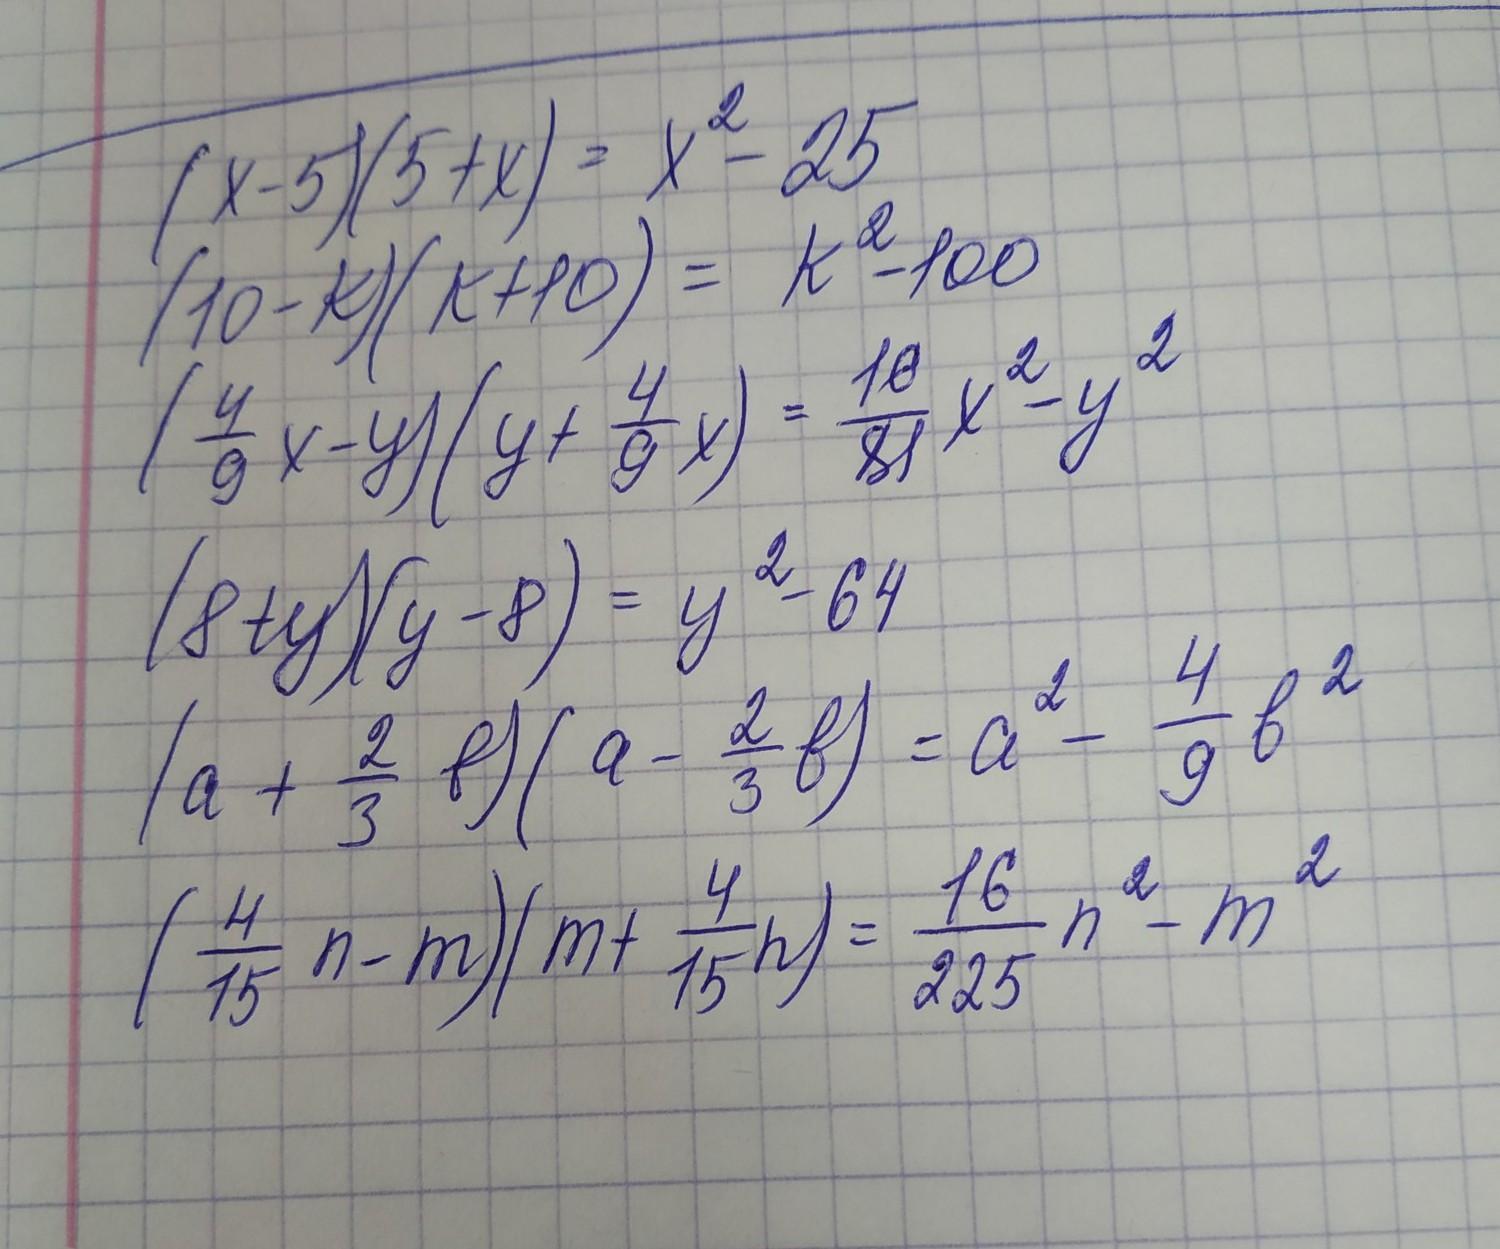 (x-5)(5+x) = x²-25
(10-k)(k+10) = k²-100
(4/9 x-y)(y+ 4/9 x) = 16/81 x²-y²
(8+y)(y-8) = y²-64
(a + 2/3 в)(a - 2/3 в) = a² - 4/9 в²
(4/15 n-m)(m+ 4/15 n) = 16/225 n²-m²